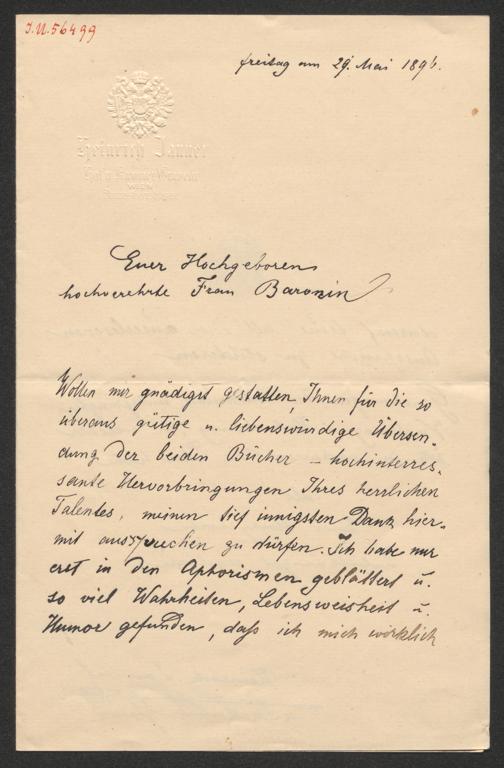 J.N. 56499
Freitag am 29. Mai 1896.
Heinrich Jauner
Hof u. Kammer Graveur
WIEN
Euer Hochgeboren
hochverehrte Frau Baronin
Wollen mir gnädigst gestatten, Ihnen für die so
überaus gütige u. liebenswürdige Übersen-
dung der beiden Bücher – hochinterres-
sante Hervorbringungen Ihres herrlichen
Talentes, meinen tief innigsten Dank hier-
mit aussprechen zu dürfen. Ich habe nur
erst in den Aphorismen geblättert u.
so viel Wahrheiten, Lebensweisheit u.
Humor gefunden, daß ich mich wirklich